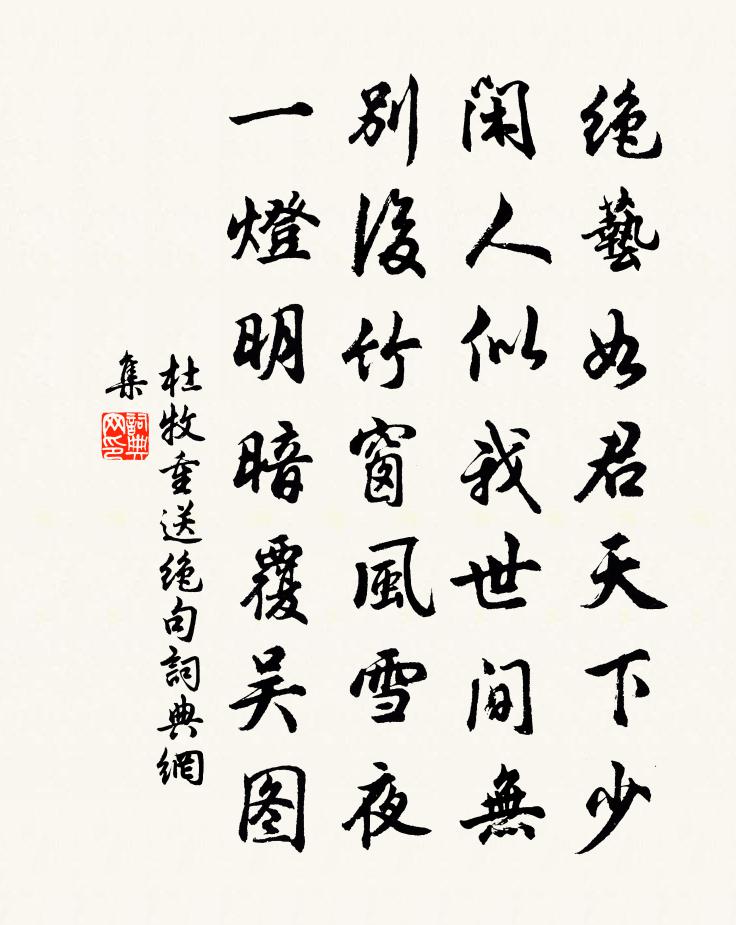 绝藝如君天下少
闲人似我世间無
别後竹窗風雪夜
一燈明暗覆吴图
杜牧重送绝句詞典網
集
詞典
网印